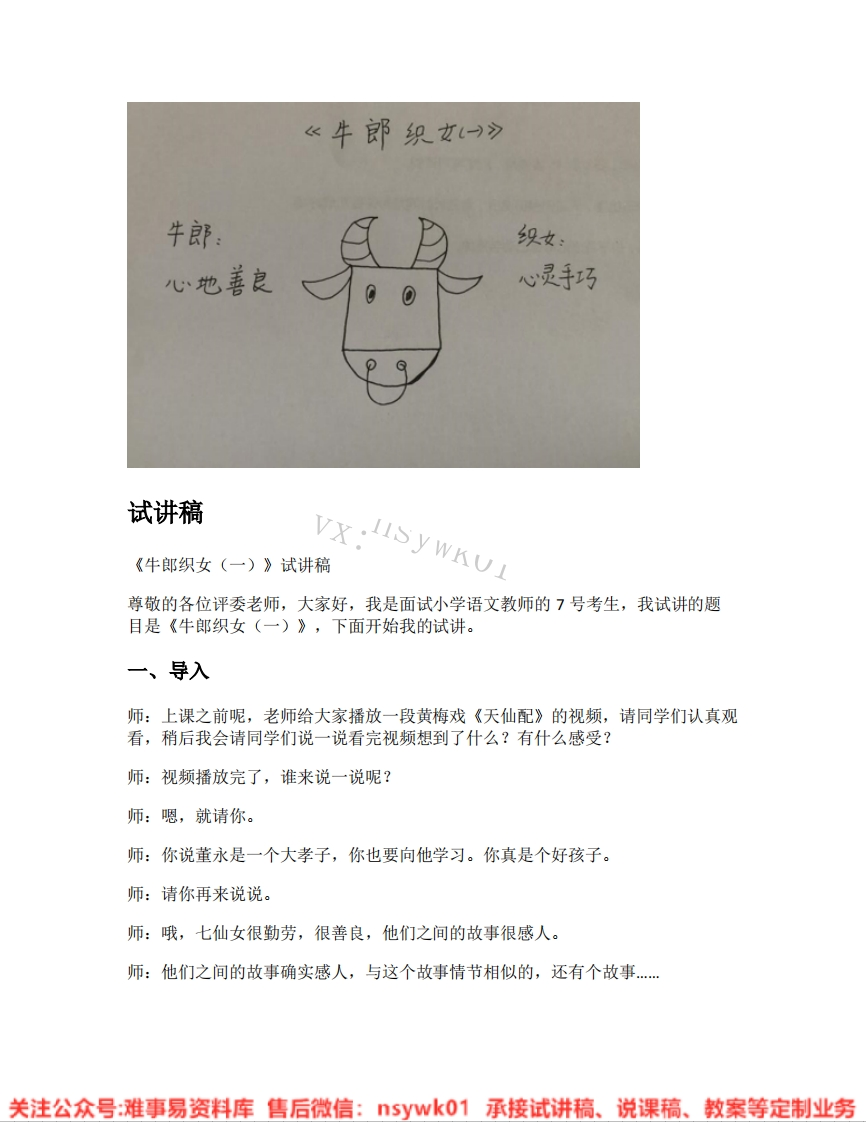 《牛郎织女(一)》
牛郎：
心地善良
织女：
心灵手巧
试讲稿
VX:nsywk01
《牛郎织女（一）》试讲稿
尊敬的各位评委老师，大家好，我是面试小学语文教师的 7 号考生，我试讲的题
目是《牛郎织女（一）》，下面开始我的试讲。
一、导入
师：上课之前呢，老师给大家播放一段黄梅戏《天仙配》的视频，请同学们认真观
看，稍后我会请同学们说一说看完视频想到了什么？有什么感受？
师：视频播放完了，谁来说一说呢？
师：嗯，就请你。
师：你说董永是一个大孝子，你也要向他学习。你真是个好孩子。
师：请你再来说说。
师：哦，七仙女很勤劳，很善良，他们之间的故事很感人。
师：他们之间的故事确实感人，与这个故事情节相似的，还有个故事……
关注公众号:难事易资料库 售后微信：nsywk01 承接试讲稿、说课稿、教案等定制业务